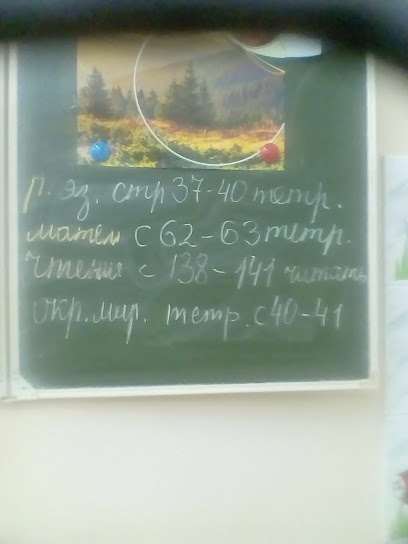 р. яз. стр 37-40 тетр.
матем с 62-63 тетр.
Чтение с 138-141 читать
окр. мир. тетр. с 40-41